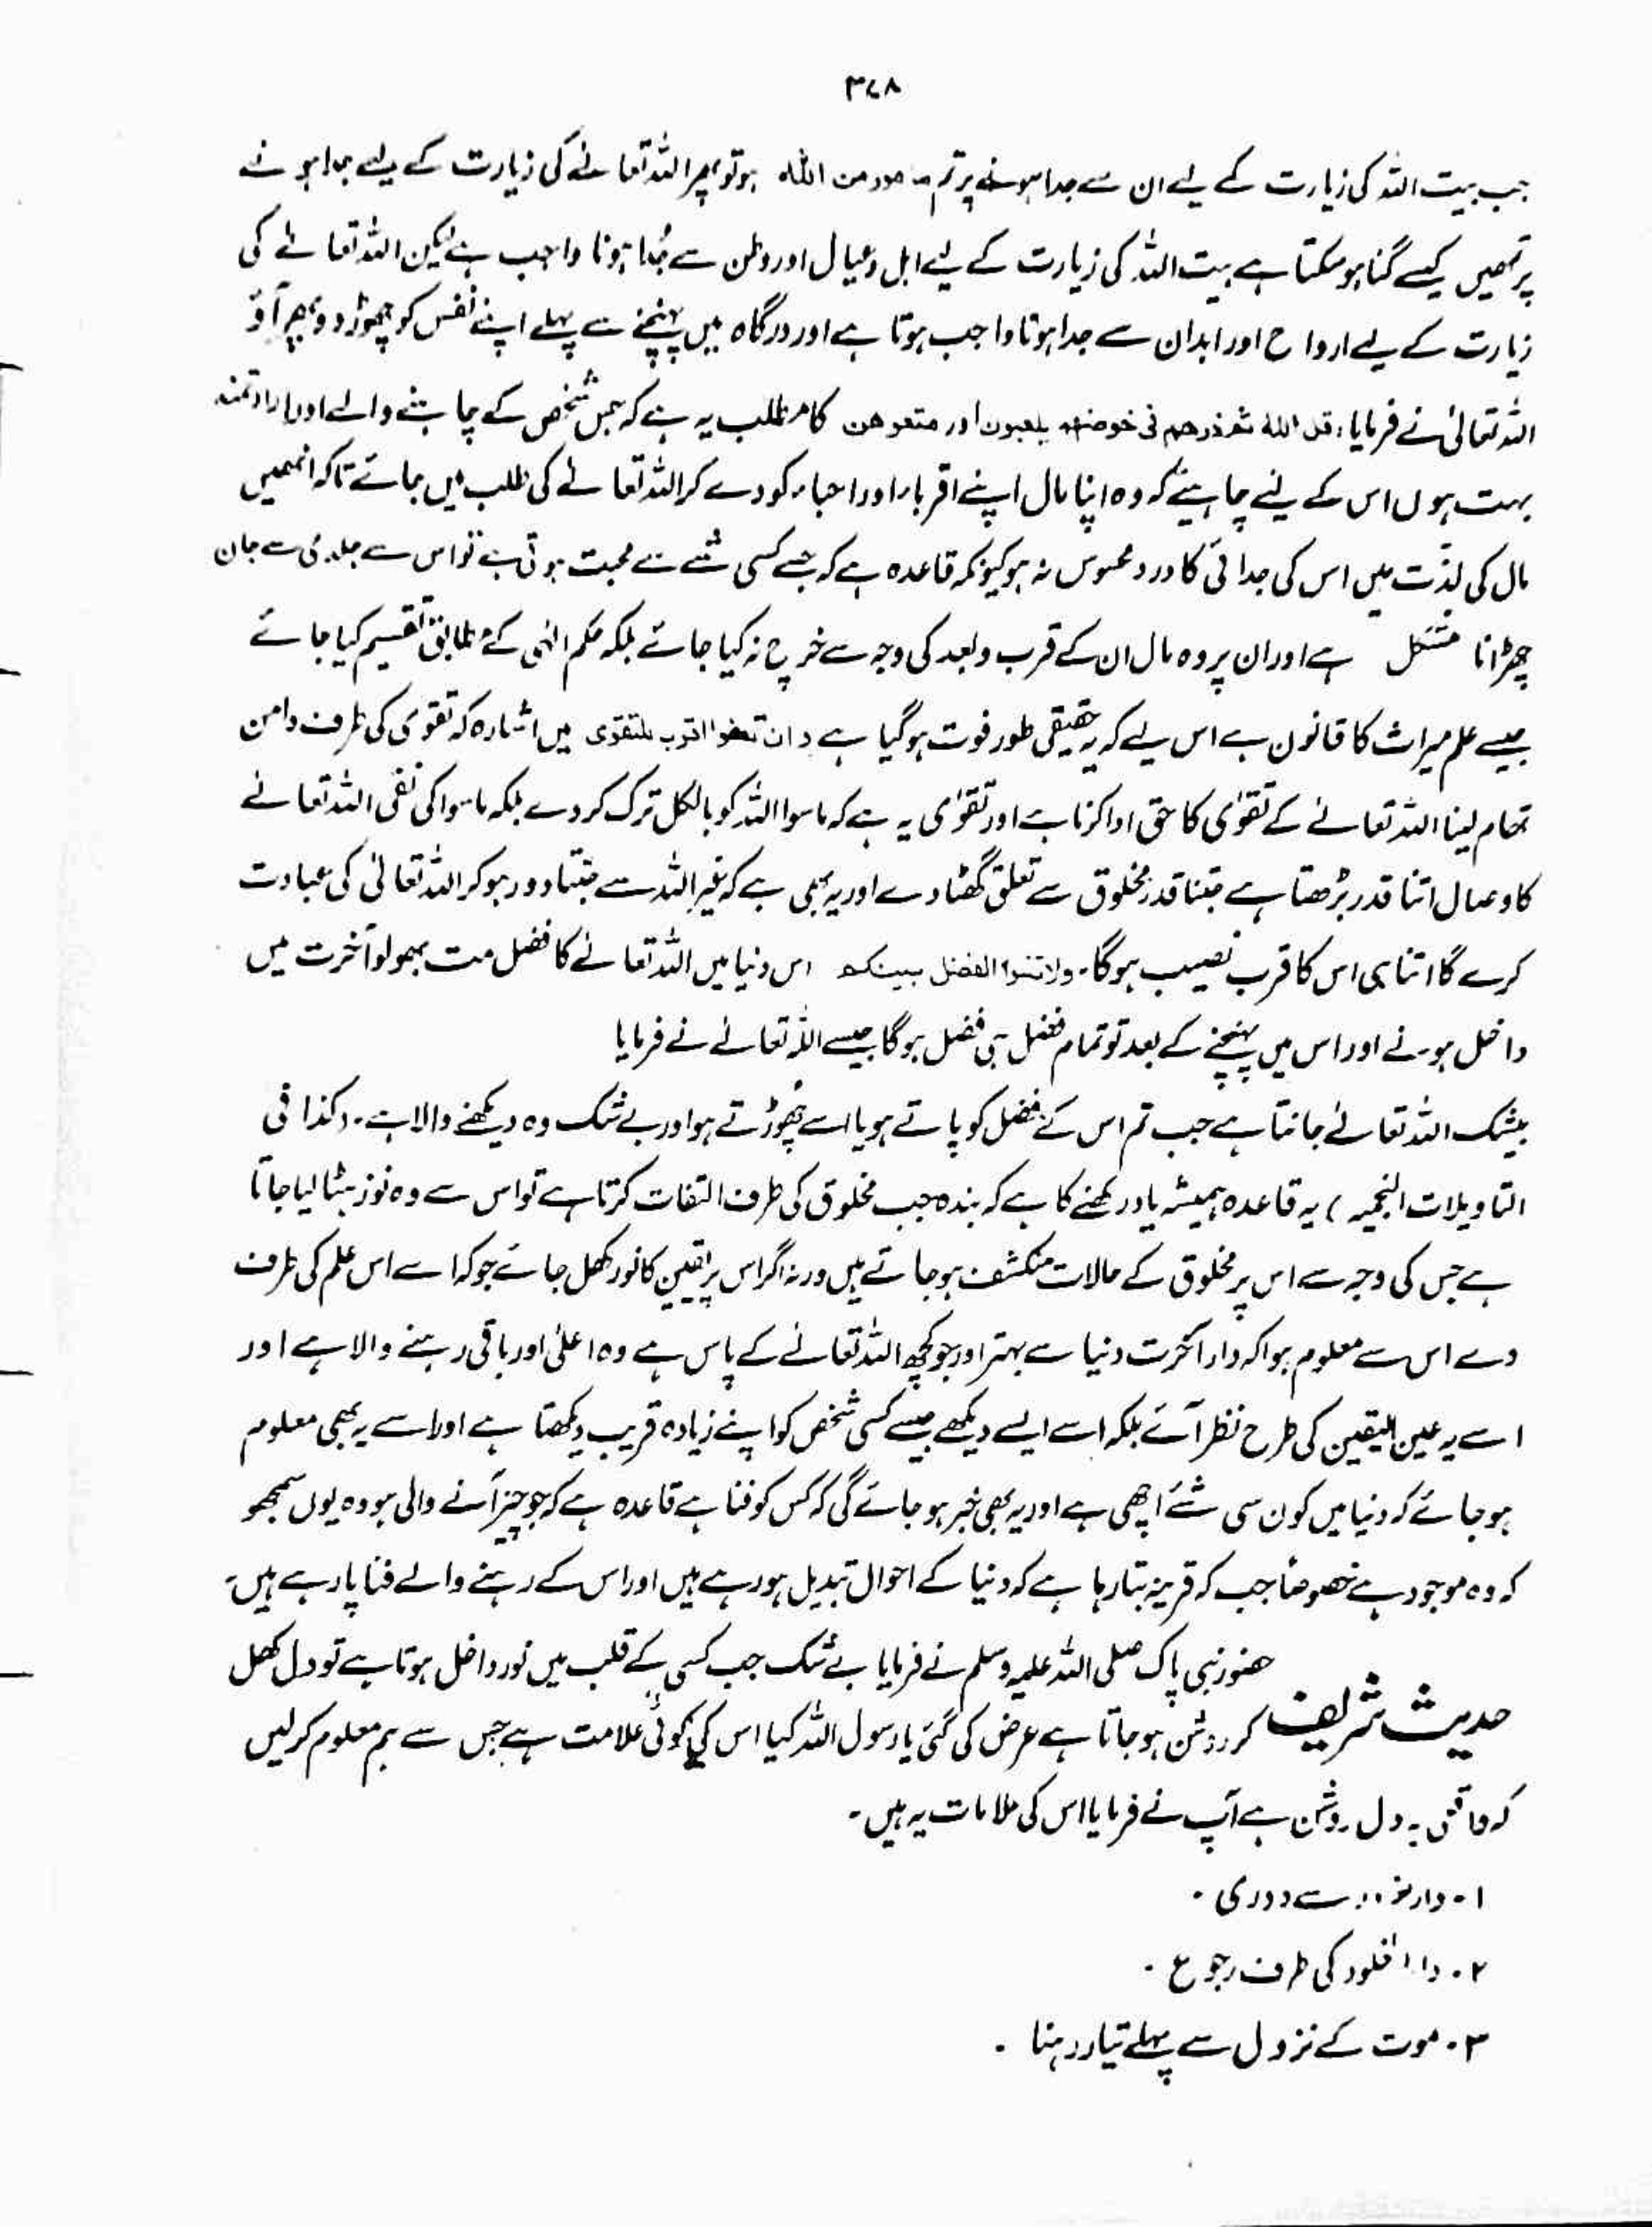 ۳۷۸
جب بیت اللہ کی زیارت کے لیے ان سے جدا ہونے پر تم مامور من اللہ ہو تو پھر اللہ تعالےٰ کی زیارت کے لیے جدا ہونے
پر تمھیں کیسے گنا ہو سکتا ہے بیت اللہ کی زیارت کے لیے اہل و عیال اور وطن سے جُدا ہونا واجب ہے لیکن اللہ تعالےٰ کی
زیارت کے لیے ارواح اور ابدان سے جدا ہونا واجب ہوتا ہے اور درگاہ میں پہنچنے سے پہلے اپنے نفس کو چھوڑ دو پھر آؤ
اللہ تعالیٰ نے فرمایا، قل اللہ ثم ذرھم فی خوضھم یلعبون اور متعوھن کا مطلب یہ ہے کہ جس شخص کے چاہنے والے اور ارادتمند
بہت ہوں اس کے لئے چاہیئے کہ وہ اپنا مال اپنے اقرباء اور احباء کو دے کر اللہ تعالےٰ کی طلب میں جائے تاکہ انھیں
مال کی لذت میں اس کی جدائی کا درد محسوس نہ ہو کیونکہ قاعدہ ہے کہ جسے کسی شے سے محبت ہوتی ہے تو اس سے جلدی سے جان
چھڑانا مشکل ہے اور ان پر وہ مال ان کے قرب و بعد کی وجہ سے خرچ نہ کیا جائے بلکہ حکم الٰہی کے مطابق تقسیم کیا جائے
جیسے علم میراث کا قانون ہے اس لیے کہ یہ حقیقی طور فوت ہو گیا ہے و ان تعفوا اقرب للتقوی میں اشارہ کہ تقویٰ کی طرف دامن
تھام لینا اللہ تعالےٰ کے تقوٰی کا حق ادا کرنا ہے اور تقوٰی یہ ہے کہ ماسوا اللہ کو بالکل ترک کر دے بلکہ ماسوا کی نفی اللہ تعالےٰ
کا وصال اتنا قدر بڑھتا ہے جتنا قدر مخلوق سے تعلق گھٹا دے اور یہ بھی ہے کہ غیر اللہ سے جتنا دور ہو کر اللہ تعالیٰ کی عبادت
کرے گا اتنا ہی اس کا قرب نصیب ہوگا۔ ولا تنسوا الفضل بینکم اس دنیا میں اللہ تعالےٰ کا فضل مت بھولو آخرت میں
داخل ہونے اور اس میں پہنچنے کے بعد تو تمام فضل ہی فضل ہوگا جیسے اللہ تعالےٰ نے فرمایا
بیشک اللہ تعالےٰ جانتا ہے جب تم اس کے فضل کو پاتے ہو یا اسے چھوڑتے ہو اور بے شک وہ دیکھنے والا ہے۔ (کذا فی
التاویلات النجمیہ) یہ قاعدہ ہمیشہ یاد رکھنے کا ہے کہ بندہ جب مخلوق کی طرف التفات کرتا ہے تو اس سے وہ نور ہٹا لیا جاتا
ہے جس کی وجہ سے اس پر مخلوق کے حالات منکشف ہو جاتے ہیں ورنہ اگر اس پر یقین کا نور کھل جائے جو کہ اسے اس علم کی طرف
دے اس سے معلوم ہوا کہ دار آخرت دنیا سے بہتر اور جو کچھ اللہ تعالےٰ کے پاس ہے وہ اعلیٰ اور باقی رہنے والا ہے اور
اسے یہ عین الیقین کی طرح نظر آئے بلکہ اسے ایسے دیکھے جیسے کسی شخص کو اپنے زیادہ قریب دیکھتا ہے اور اسے یہ بھی معلوم
ہو جائے کہ دنیا میں کون سی شئے اچھی ہے اور یہ بھی خبر ہو جائے گی کہ کس کو فنا ہے قاعدہ ہے کہ جو چیز آنے والی ہو وہ یوں سمجھو
کہ وہ موجود ہے خصوصاً جب کہ قرینہ بتا رہا ہے کہ دنیا کے احوال تبدیل ہو رہے ہیں اور اس کے رہنے والے فنا پا رہے ہیں۔
حضور نبی پاک صلی اللہ علیہ وسلم نے فرمایا بے شک جب کسی کے قلب میں نور داخل ہوتا ہے تو دل کھل
حدیث شریف کر روشن ہو جاتا ہے عرض کی گئی یا رسول اللہ کیا اس کی کوئی علامت ہے جس سے ہم معلوم کر لیں
کہ واقعی یہ دل روشن ہے آپ نے فرمایا اس کی علامات یہ ہیں۔
۱۔ دار سے دوری۔
۲۔ دار الخلود کی طرف رجوع۔
۳۔ موت کے نزول سے پہلے تیار رہنا۔